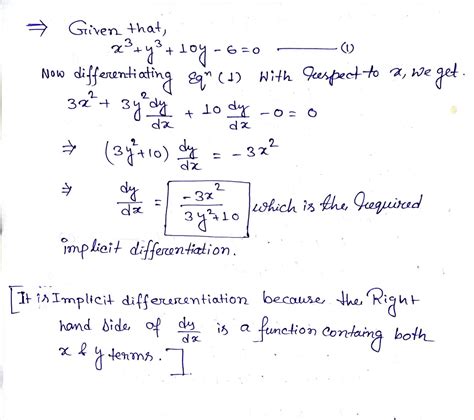 ⇒ Given that,
x³+y³+10y-6=0 —— (1)
Now differentiating Eqⁿ (1) With Respect to x, we get.
3x² + 3y² dy/dx + 10 dy/dx - 0 = 0
⇒ (3y²+10) dy/dx = -3x²
⇒ dy/dx = -3x²/3y²+10 which is the Required
implicit differentiation.
[It is Implicit differerentiation because the Right
hand side of dy/dx is a function containg both
x & y terms.]